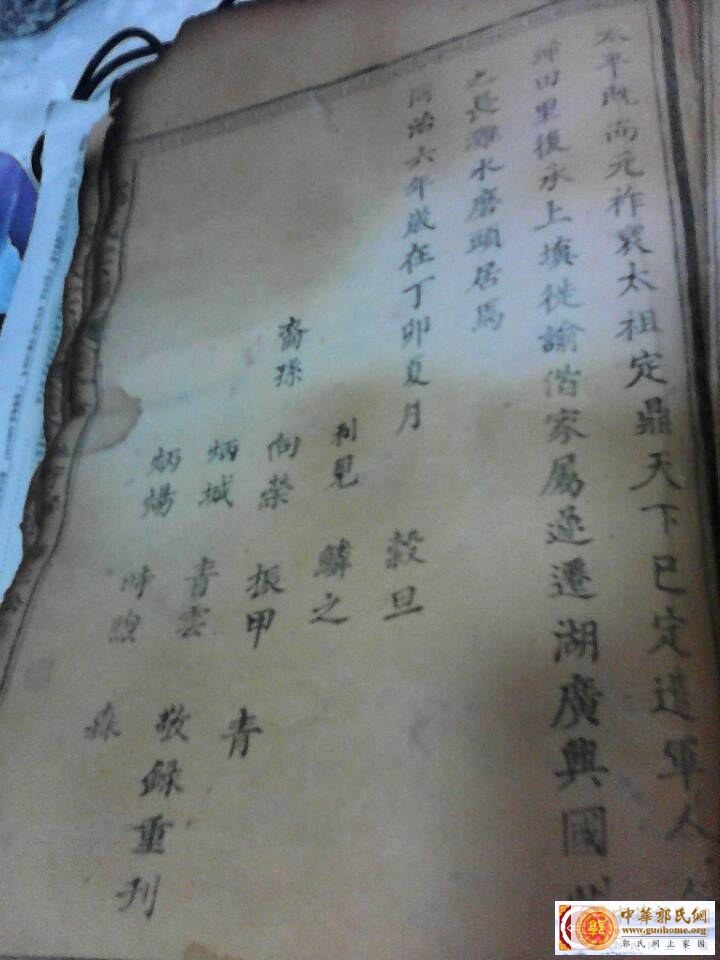 太平既而元祚衰太祖定鼎天下已定遣軍人
田里後承上填從諭偕家屬逆遷湖廣興國
之長灘水磨頭居焉
同治六年歲在丁卯夏月 穀旦
利見 鱗之
裔孫 向榮 振甲 青
炳城 青雲 敬錄重刊
炳煬 時煦 森
中華郭氏網
www.guohome.org
郭氏网上家园